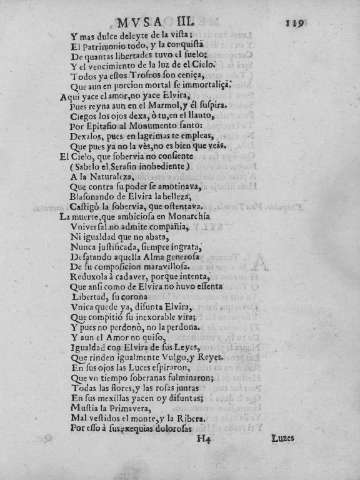 MVSA III. 119
Y mas dulce deleyte de la vista;
El Patrimonio todo, y la conquista
De quantas libertades tuvo el suelo;
Y el vencimiento de la luz de el Cielo.
Todos ya estos Trofeos son ceniça,
Que aun en porcion mortal se immortaliça.
Aqui yace el amor, no yace Elvira,
Pues reyna aun en el Marmol, y él suspira.
Ciegos los ojos dexa, ò tu, en el llanto,
Por Epitafio al Monumento santo:
Dexalos, pues en lagrimas te empleas,
Que pues ya no la vès, no es bien que veas.
El Cielo, que sobervia no consiente
(Sabelo el Serafin inobediente)
A la Naturaleza,
Que contra su poder se amotinava,
Blasonando de Elvira la belleza,
Castigò la sobervia, que ostentava.
La muerte, que ambiciosa en Monarchia
Vniversal no admite compañia,
Ni igualdad que no abata,
Nunca justificada, siempre ingrata,
Desatando aquella Alma generosa
De su composicion maravillosa.
Reduxola à cadaver, porque intenta,
Que ansi como de Elvira no huvo essenta
Libertad, su corona
Vnica quede ya, difunta Elvira,
Que compitió su inexorable vira;
Y pues no perdonò, no la perdona.
Y aun el Amor no quiso,
Igualdad con Elvira de sus Leyes,
Que rinden igualmente Vulgo, y Reyes.
En sus ojos las Luces espiraron,
Que vn tiempo soberanas fulminaron;
Todas las flores, y las rosas juntas
En sus mexillas yacen oy difuntas;
Mustia la Primavera,
Mal vestidos el monte, y la Ribera.
Por esso à sus exequias dolorosas
H4 Luzes